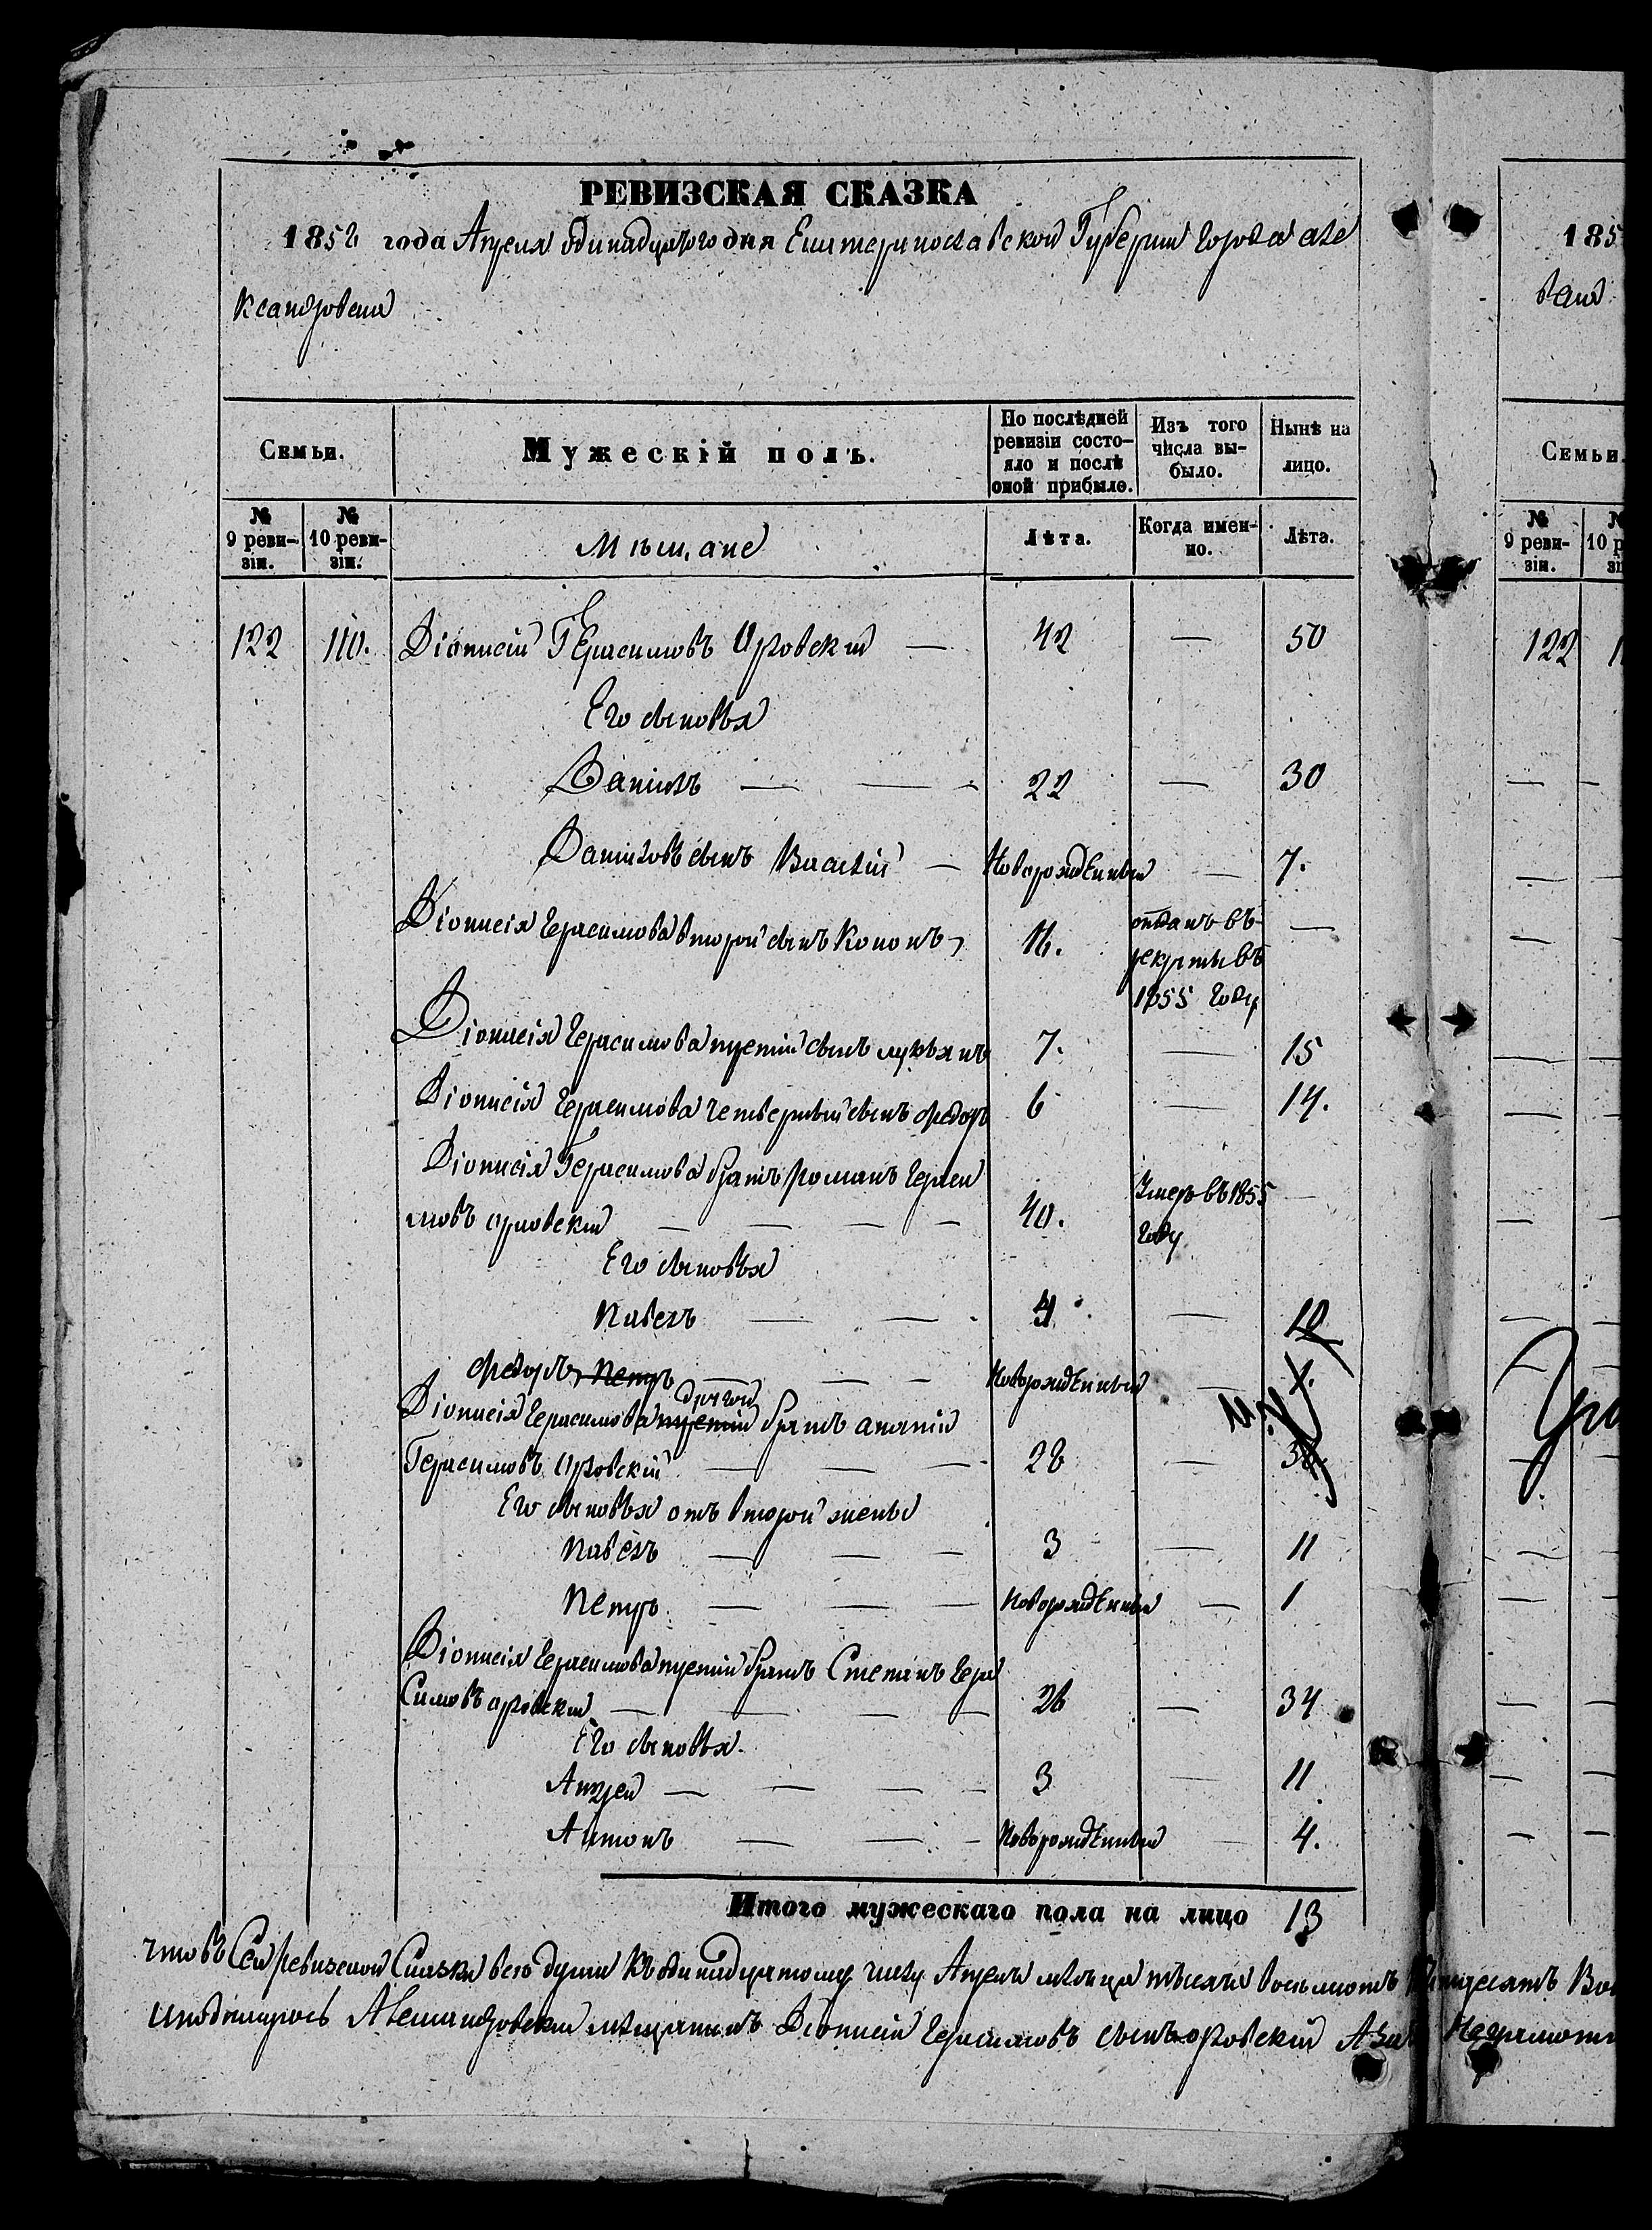 РЕВИЗСКАЯ СКАЗКА
1858 года Апреля одинадцатого дня Екатеринославской Губернии города Але
ксандровска
Семьи.
Мужескій полъ.
По послѣдней ревизіи состояло и послѣ оной прибыло.
Изъ того числа выбыло.
Нынѣ на лицо.
№ 9 ревизіи.
№ 10 ревизіи.
Мѣщане
Лѣта.
Когда именно.
Лѣта.
122 110. Діонисій Герасимовъ Орловскій — 42 — 50
Его сыновья
Даніилъ — — 22 — 30
Даніиловъ сынъ Василій — Новорожденный — 7.
Діонисія Герасимова второй сынъ Кононъ 16. отданъ въ рекруты въ 1855 году —
Діонисія Герасимова третій сынъ Лукьянъ 7. — 15
Діонисія Герасимова четвертый сынъ Федоръ 6 — 14.
Діонисія Герасимова братъ Романъ Гераси
мовъ Орловскій — — — — 40. Умеръ въ 1855 году —
Его сыновья
Павелъ — — 4 — 10
Федоръ Петръ — — — Новорожденный —
Діонисія Герасимова третій другой братъ Ананій
Герасимовъ Орловскій — — — 28 —
Его сыновья отъ второй жены
Павелъ — — — 3 — 11
Петръ — — — Новорожденный — 1
Діонисія Герасимова третій братъ Степанъ Гера
симовъ Орловскій — — — — 26 — 34
Его сыновья
Андрей — — — — 3 — 11
Антонъ — — — Новорожденный — 4.
Итого мужескаго пола на лицо 13
что въ сей ревизской сказки всю души къ одинадцатому числу Апреля мѣсяца тысяча восьмсотъ пятдесятъ
Александровскій мѣщанинъ Діонисій Герасимовъ сынъ Орловскій А за
185
Семьи.
№ 9 ревизіи.
122